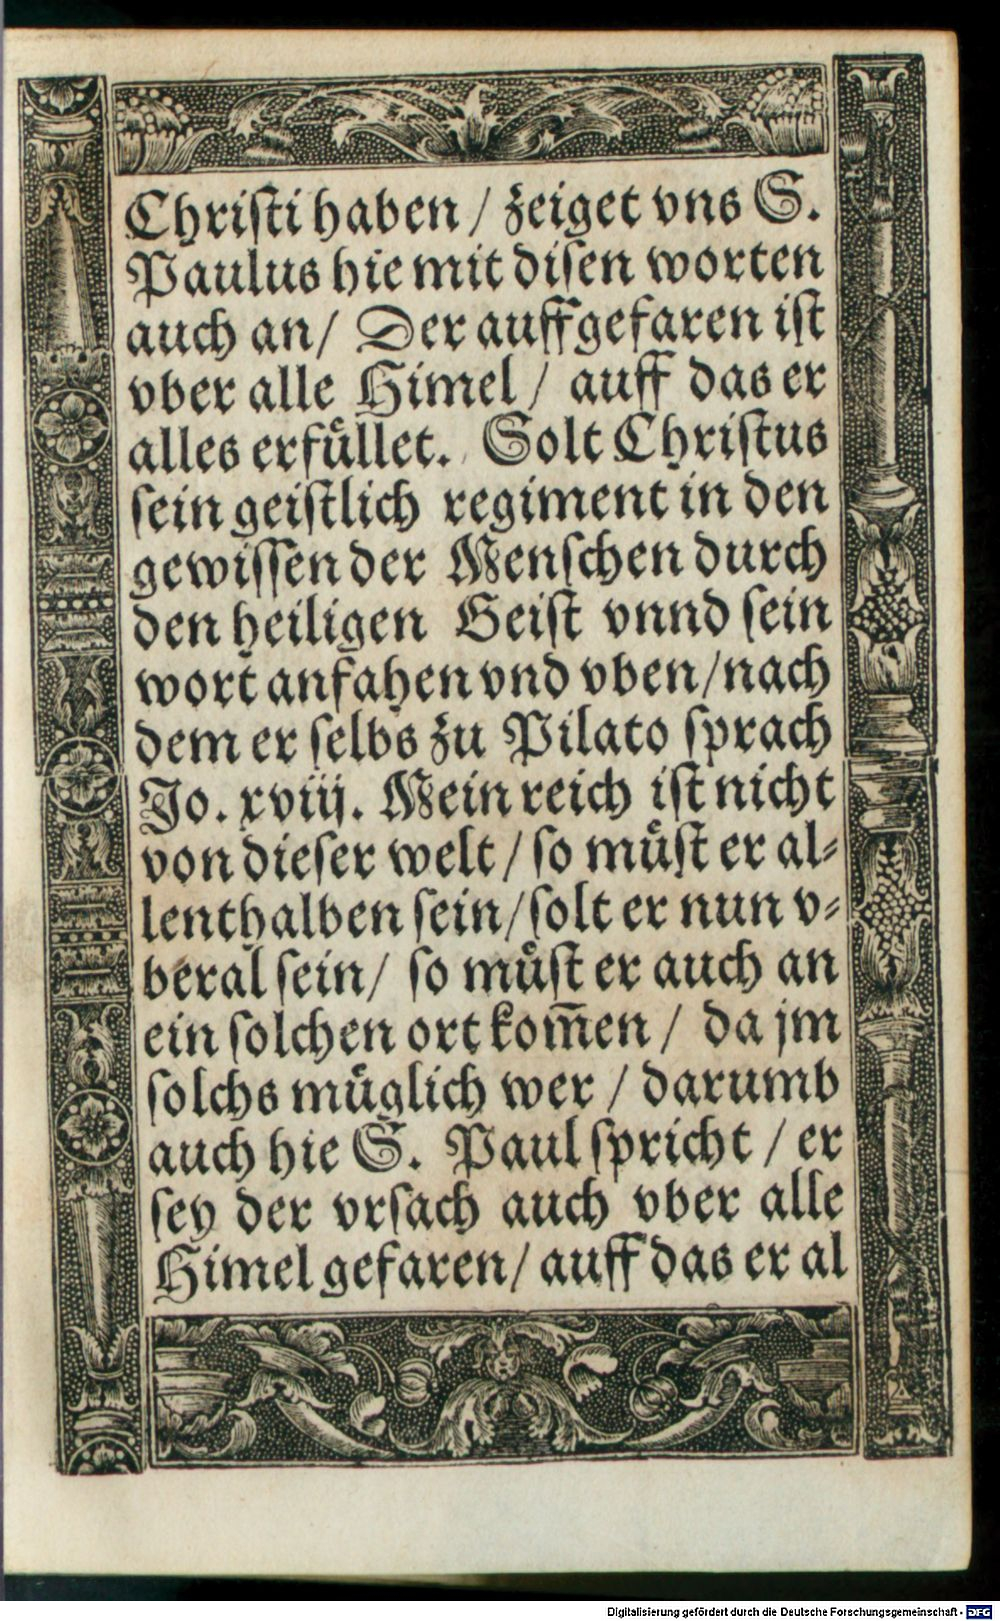 Christi haben / zeiget vns S.
Paulus hie mit disen worten
auch an / Der auff gefaren ist
vber alle Himel / auff das er
alles erfuͤllet. Solt Christus
sein geistlich regiment in den
gewissen der Menschen durch
den heiligen Geist vnnd sein
wort anfahen vnd vben / nach
dem er selbs zu Pilato sprach
Jo. xviij. Mein reich ist nicht
von dieser welt / so muͤst er al⸗
lenthalben sein / solt er nun v⸗
beral sein / so muͤst er auch an
ein solchen ort kom̄en / da jm
solchs muͤglich wer / darumb
auch hie S. Paul spricht / er
sey der vrsach auch vber alle
Himel gefaren / auff das er al
Digitalisierung gefördert durch die Deutsche Forschungsgemeinschaft - DFG